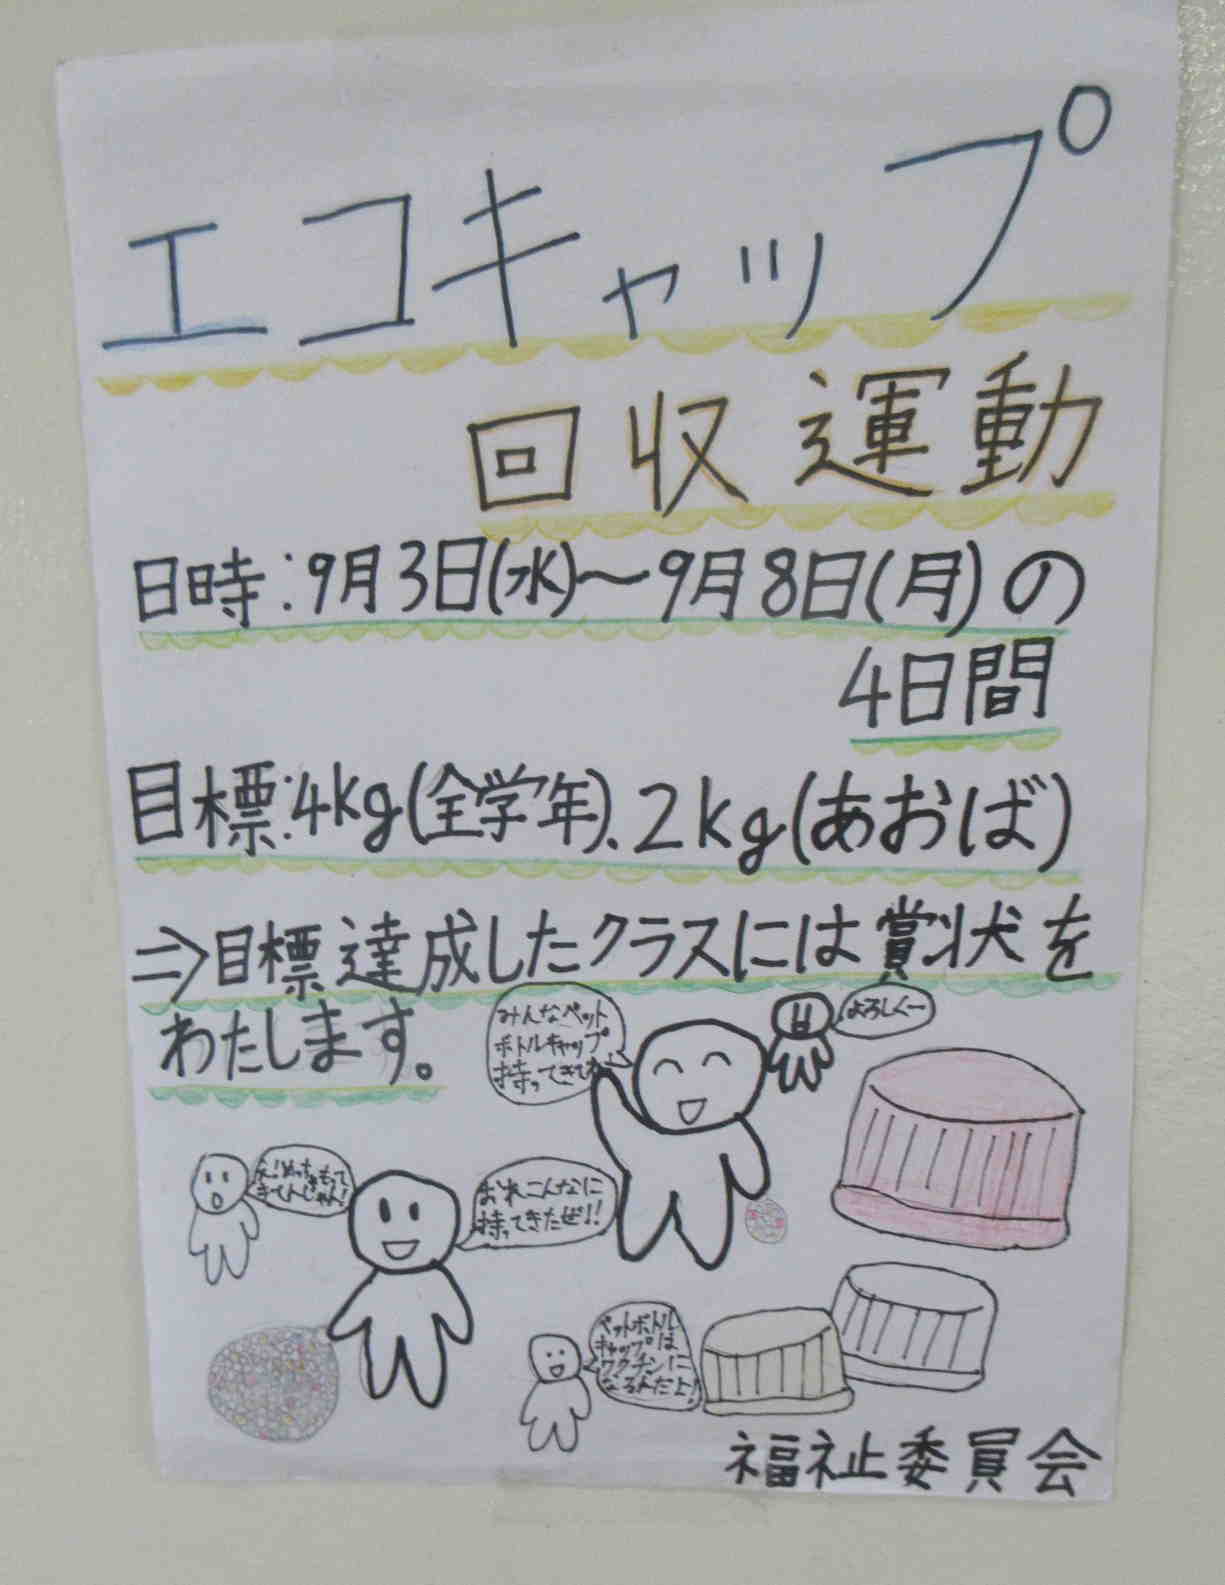 エコキャップ
回収運動
日時:9月3日(水)〜9月8日(月)の
4日間
目標:4kg(全学年)、2kg(あおば)
⇒目標達成したクラスには賞状を
わたします。
みんなペット
ボトルキャップ
持ってきてね
よろしくー
え!めっちゃもって
きてんじゃん!
おれこんなに
持ってきたぜ!!
ペットボトル
キャップは
ワクチンに
なるんだよ!
福祉委員会